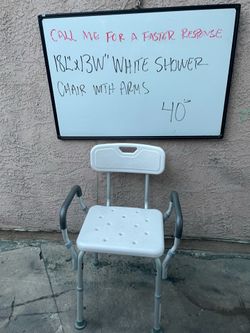 CALL ME FOR A FASTER RESPONSE
18L"x13W" WHITE SHOWER
CHAIR WITH ARMS
40$